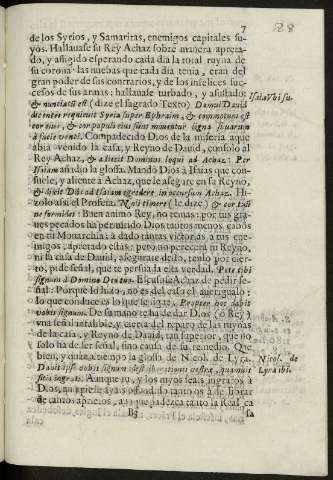 7
88
de los Syrios, y Samaritas, enemigos capitales su-
yos. Hallauase su Rey Achaz sobre manera apreta-
do, y afligido esperando cada dia la total ruyna de
su corona: las nuebas que cada dia tenia, eran del
gran poder de sus contrarios, y de los infelices suc-
cesos de sus armas: hallauase turbado, y asustado:
& nuntiatũ est (dize el sagrado Texto) Domui Dauid
dicentes requieuit Syria super Ephraim, & commotum est
cor eius, & cor populi eius sicut mouentur ligna siluarum
à facie venti. Compadecido Dios de la miseria que
abia venido la casa, y Reyno de Dauid, consolò al
Rey Achaz, & adiecit Dominus loqui ad Achaz: Per
Isaiam añadio la glossa. Mandò Dios à Isaias que con-
suele, y aliente à Achaz, que le assegure en su Reyno,
& dixit Dñs ad Isaiam egredere in occursum Achaz. Hi-
zolo assi el Profeta. Noli timere (le dize) & cor tuũ
ne formidet: Buen animo Rey, no temas: por tus gra-
ues pecados ha permitido Dios tantos menoscabos
en tu Monarchia: à dado tantas victorias à tus ene-
migos, apretado estàs: pero no pereceràs tu Reyno,
ni la casa de Dauid, asegurate dello, tenlo por cier-
to, pide señal, que te persuada esta verdad. Pete tibi
signum à Domino Deo tuo. Escusase Achaz de pedir se-
ñal: Porque lo hizo, no es del caso el aueriguallo:
lo que conduce es lo que se sigue, Propter hoc dabit
vobis signum. De su mano te ha de dar Dios (ò Rey)
vna señal infalible, y cierta del reparo de las ruynas
de la casa, y Reyno de Dauid, tan superior, que no
solo ha de ser señal, sino caussa de su remedio. Que
bien, y quã à tiempo la glossa de Nicol. de Lyra.
Aunque tu, y los tuyos seais ingratos à
Dios,
de tantos aprietos, aunque padezca tanto la Real ca
B3
sa
Isaiæ Vbi su-
Nicol. de
Lyra ibi.